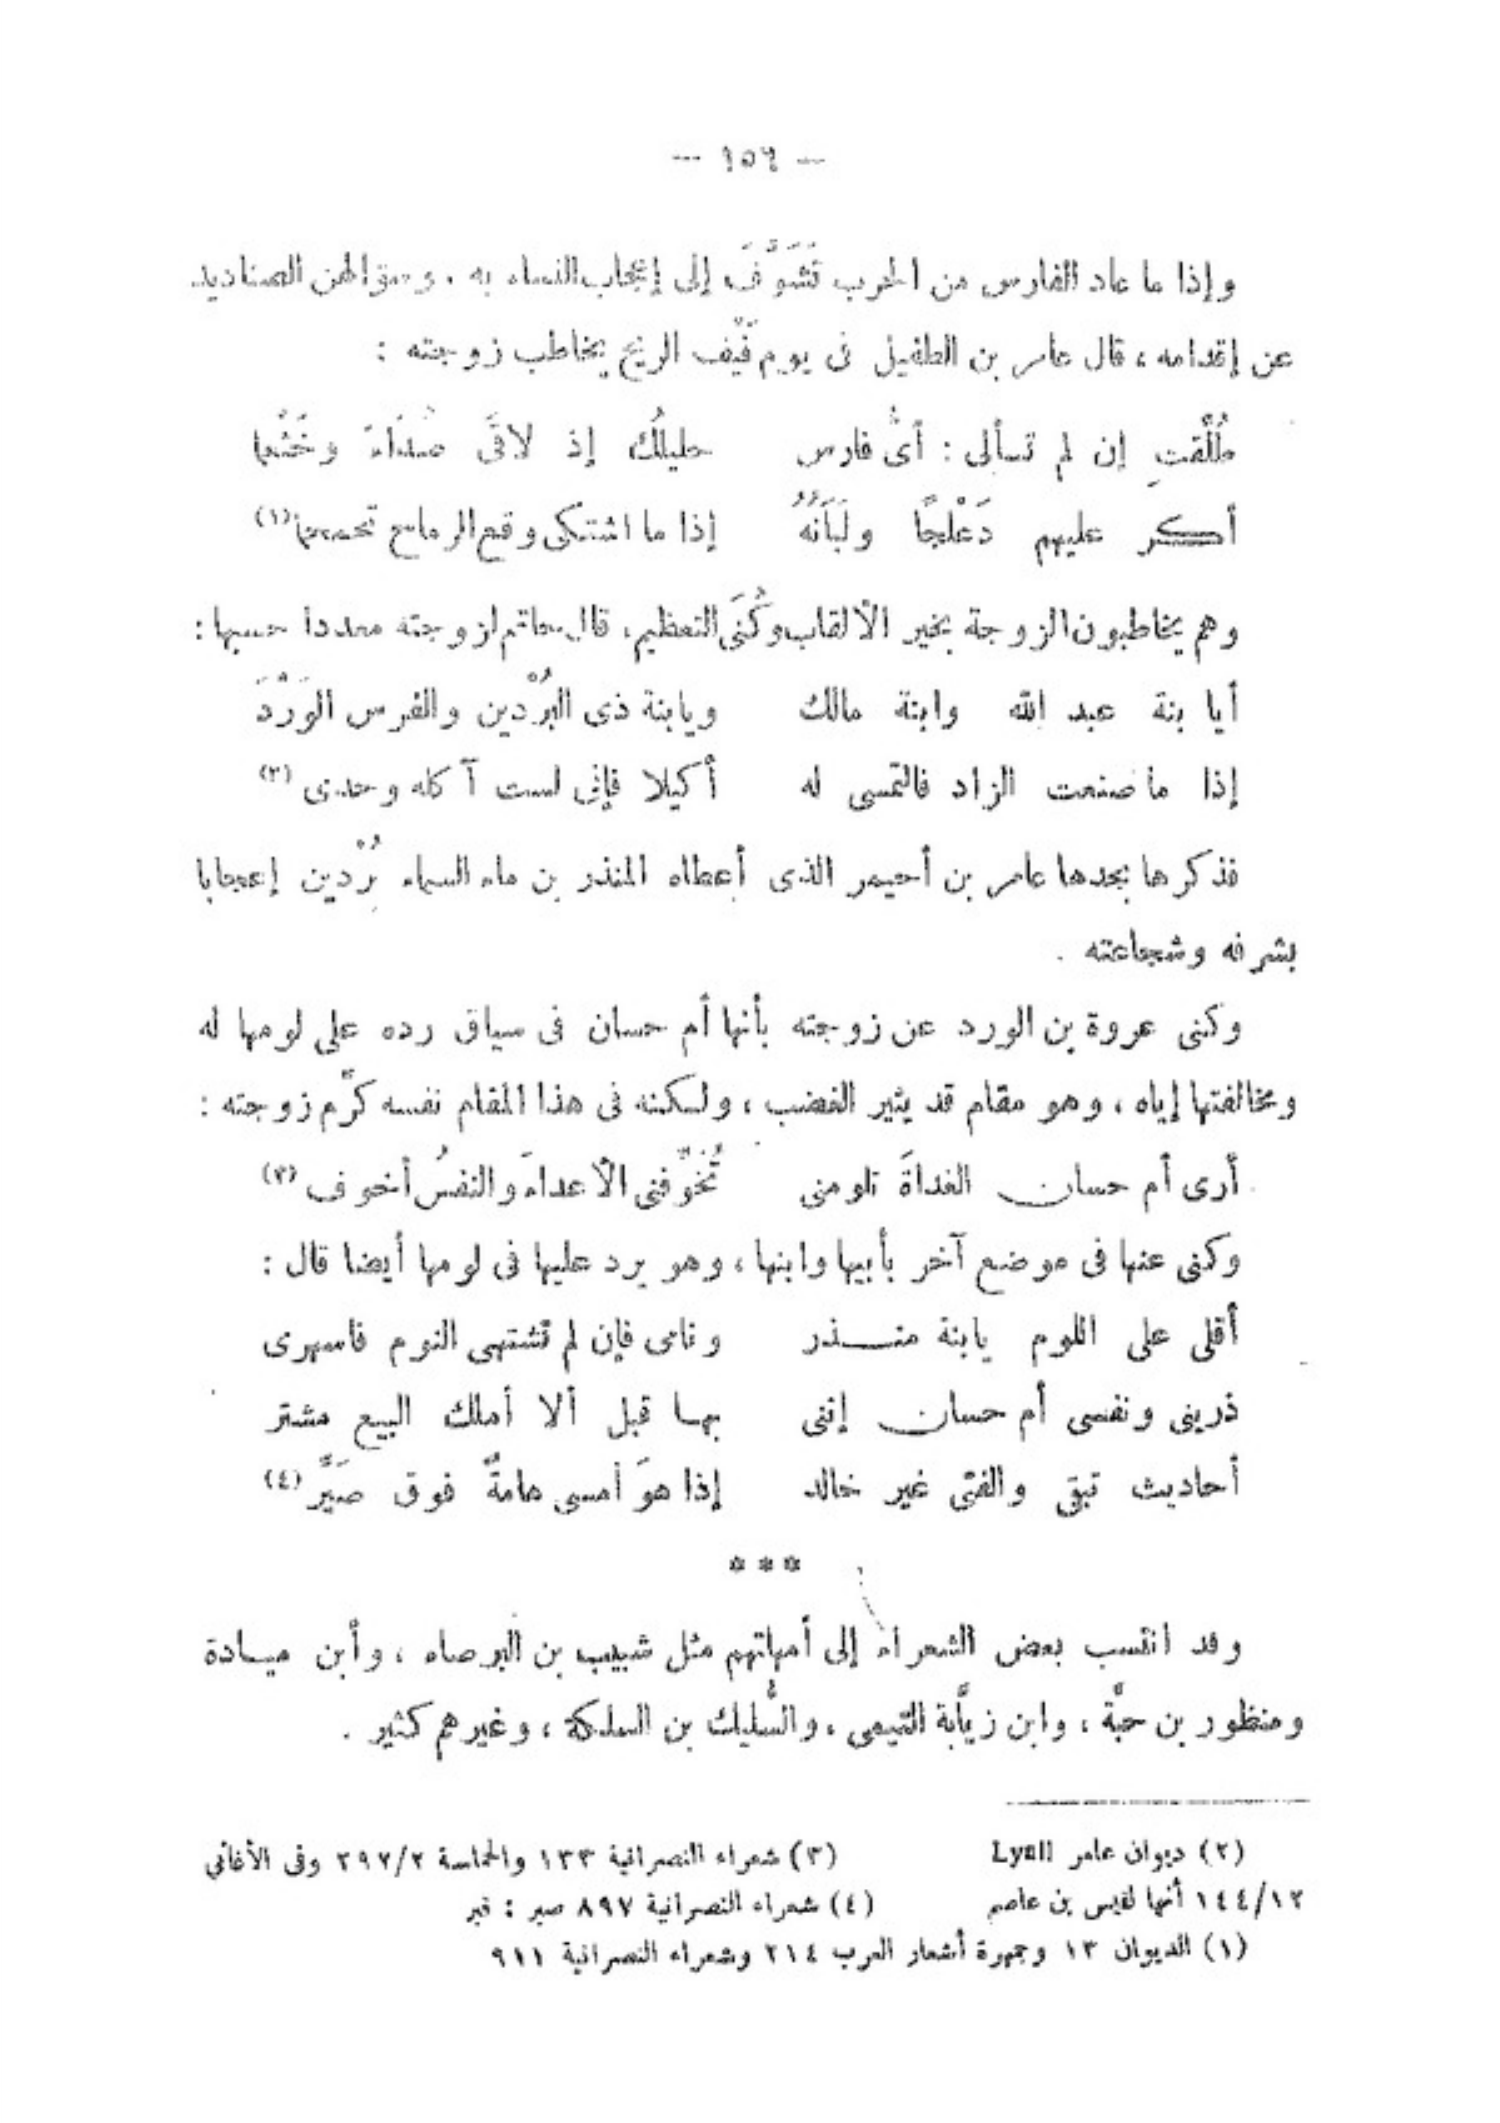 — ١٥٦ —
وإذا ما عاد الفارس من الحرب تَشَوَّفَ إلى إعجاب النساء به ، وسؤالهن الصناديد
عن إقدامه ، قال عامر بن الطفيل فى يوم فَيْف الريح يخاطب زوجته :
طُلِّقتِ إن لم تسألى : أىُّ فارس حليلُك إذ لاقَى صُدَاءَ وخَثْعما
أكر عليهم دَعْلجًا ولَبَانُهُ إذا ما اشتكى وقع الرماح تحمحما (١)
وهم يخاطبون الزوجة بخير الألقاب وكُنَى التعظيم ، قال حاتم لزوجته معددا حسبها :
أيا بنة عبد الله وابنة مالك ويابنة ذى البُرْدين والفرس الوَرْدَ
إذا ما صنعت الزاد فالتمسى له أكيلا فإنى لست آكله وحدى (٢)
فذكرها بجدها عامر بن أحيمر الذى أعطاه المنذر بن ماء السماء بُرْدين إعجابا
بشرفه وشجاعته .
وكنى عروة بن الورد عن زوجته بأنها أم حسان فى سياق رده على لومها له
ومخالفتها إياه ، وهو مقام قد يثير الغضب ، ولكنه فى هذا المقام نفسه كرَّم زوجته :
أرى أم حسان الغداةَ تلومنى تُخَوِّفنى الأعداءَ والنفسُ أخوف (٣)
وكنى عنها فى موضع آخر بأبيها وابنها ، وهو يرد عليها فى لومها أيضا قال :
أقلى على اللوم يابنة منـــذر ونامى فإن لم تشتهى النوم فاسهرى
ذرينى ونفسى أم حسان إننى بهـا قبل ألا أملك البيع مشتر
أحاديث تبقى والفتى غير خالد إذا هوَ أمسى هامةً فوق صَيِّر (٤)
* * *
وقد انتسب بعض الشعراء إلى أمهاتهم مثل شبيب بن البرصاء ، وأبن ميـادة
ومنظور بن حبَّة ، وابن زيَّابة التيمى ، والسُّليك بن السلكة ، وغيرهم كثير .
(٢) ديوان عامر Lyall (٣) شعراء النصرانية ١٣٣ والحماسة ٢٩٢/٢ وفى الأغانى
١٤٤/١٢ أنها لقيس بن عاصم (٤) شعراء النصرانية ٨٩٧ صير : قبر
(١) الديوان ١٣ وجمهرة أشعار العرب ٢١٤ وشعراء النصرانية ٩١١